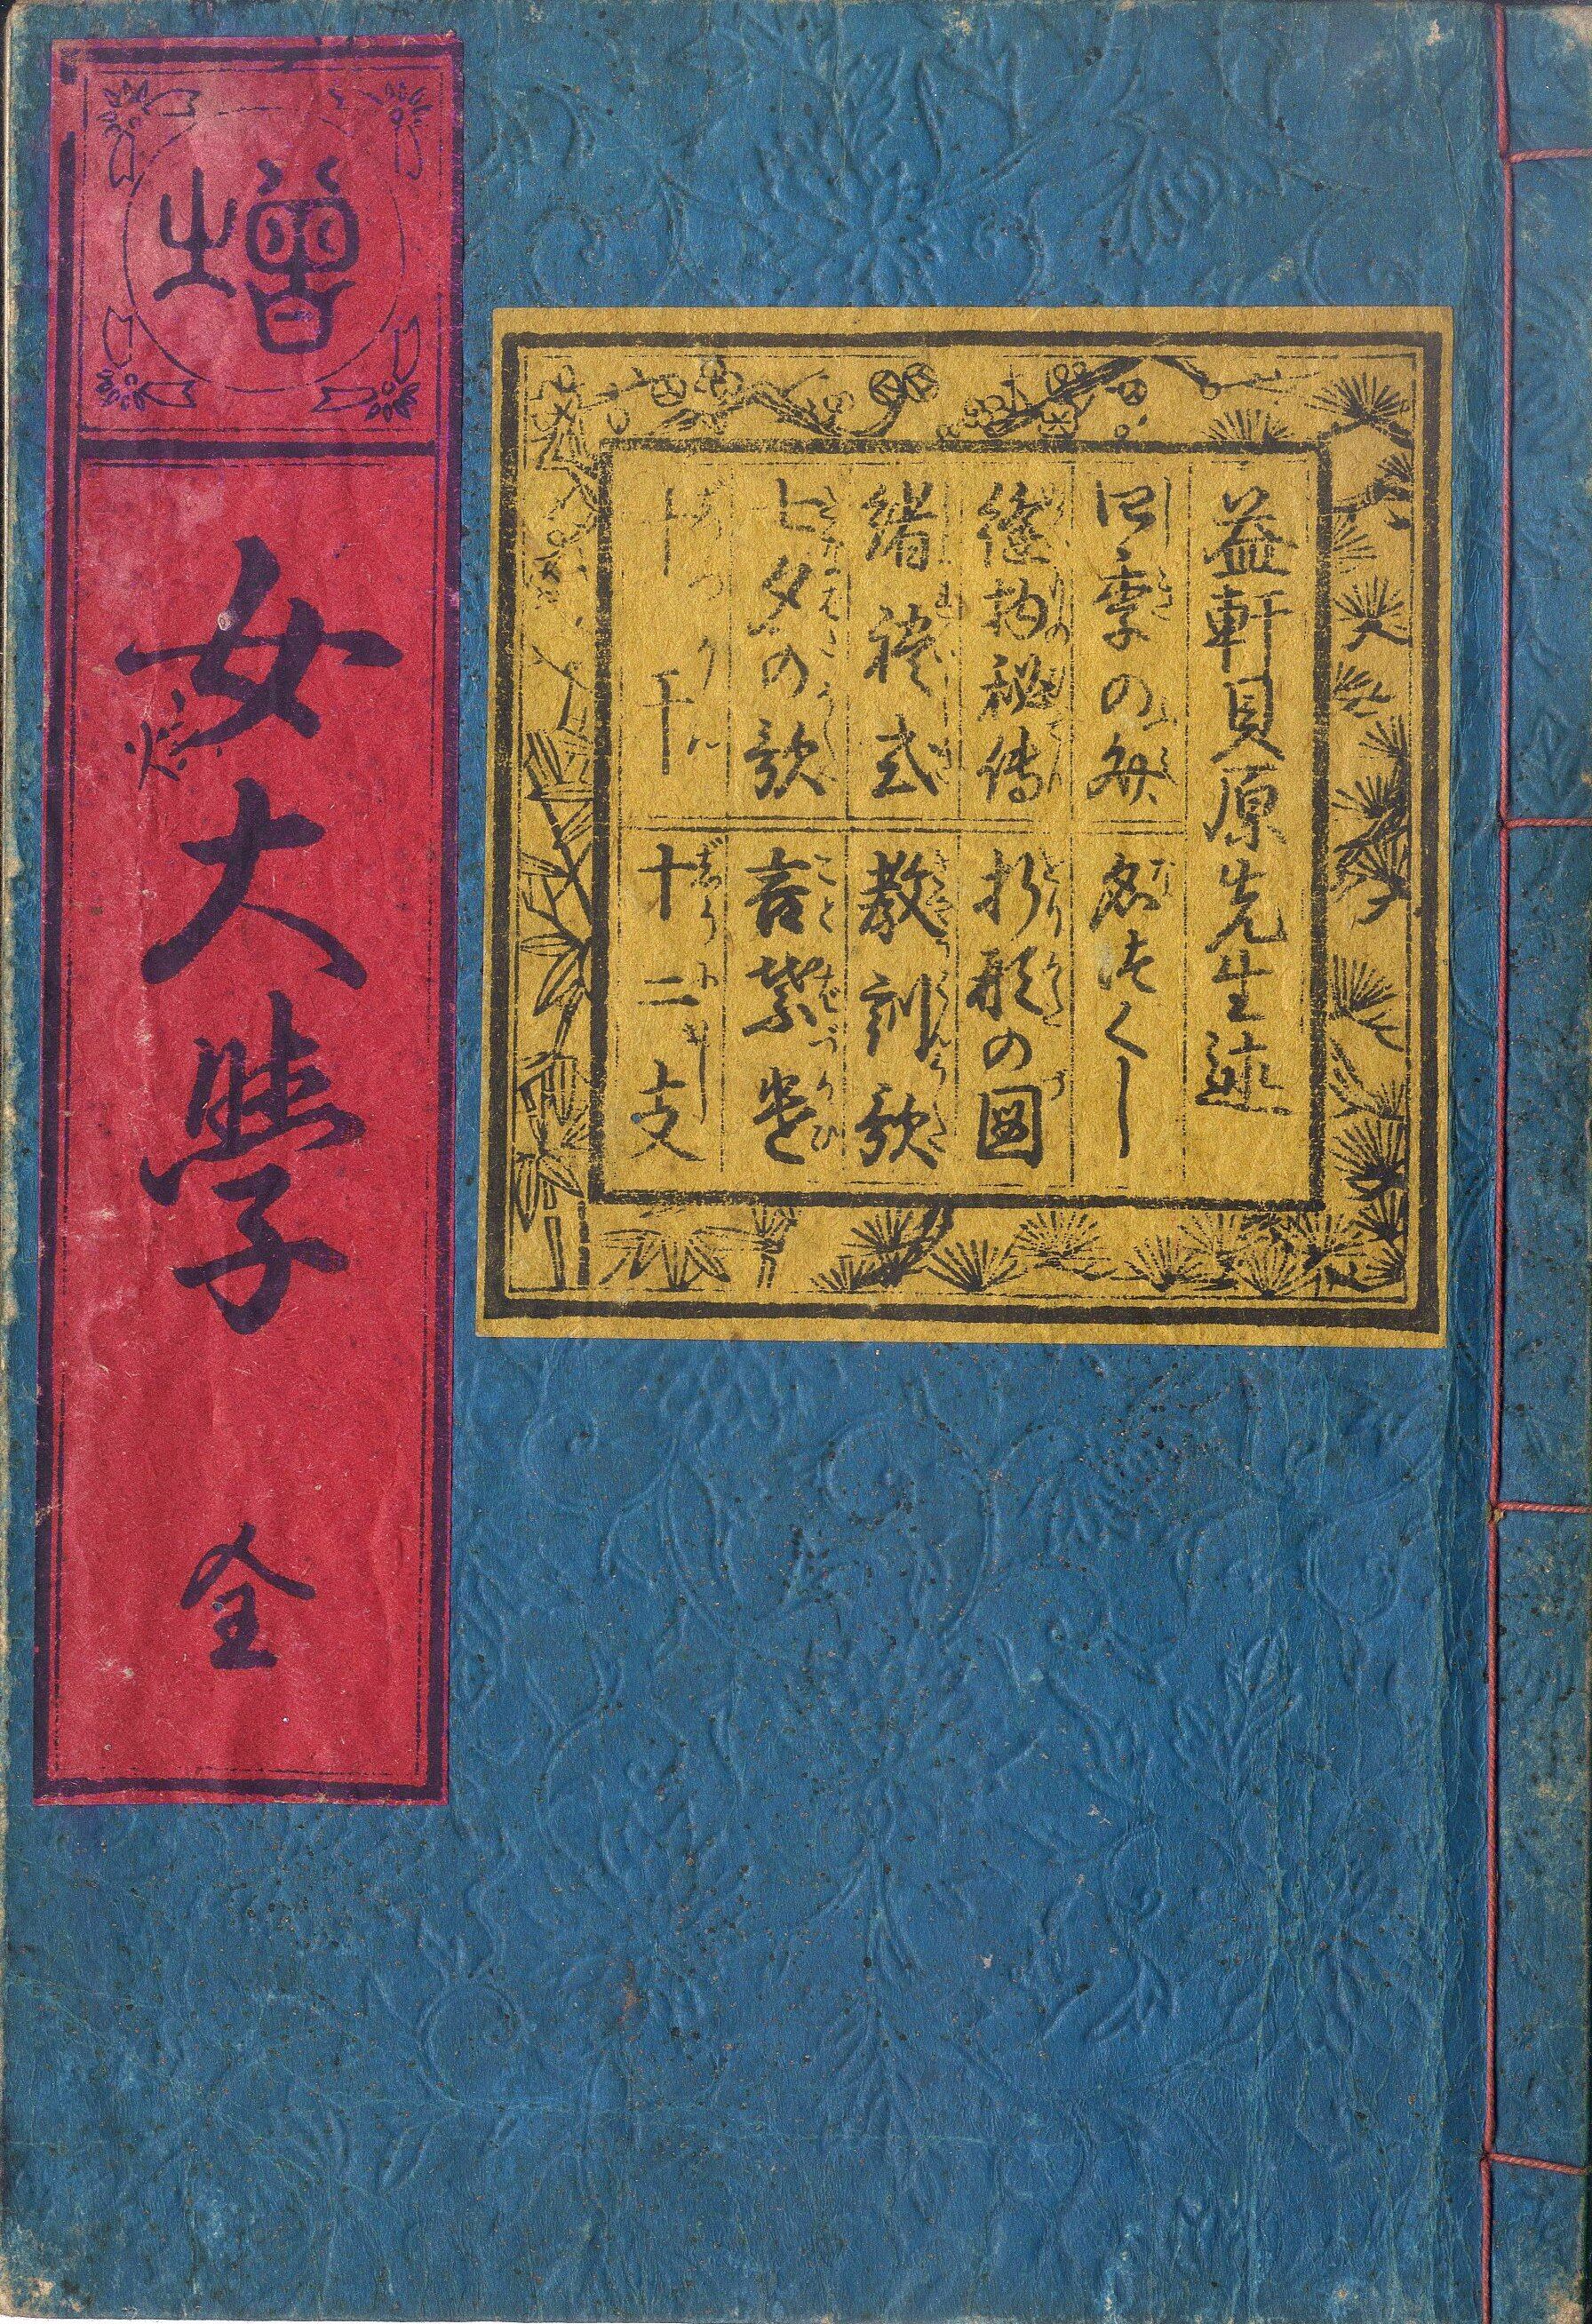 益軒貝原先生述
四季の
名つくし
縫物秘傳
折形の図
禮式
教訓歌
七夕の歌
言葉遣
ことばづかひ
十干
十二支
増
女大學 全